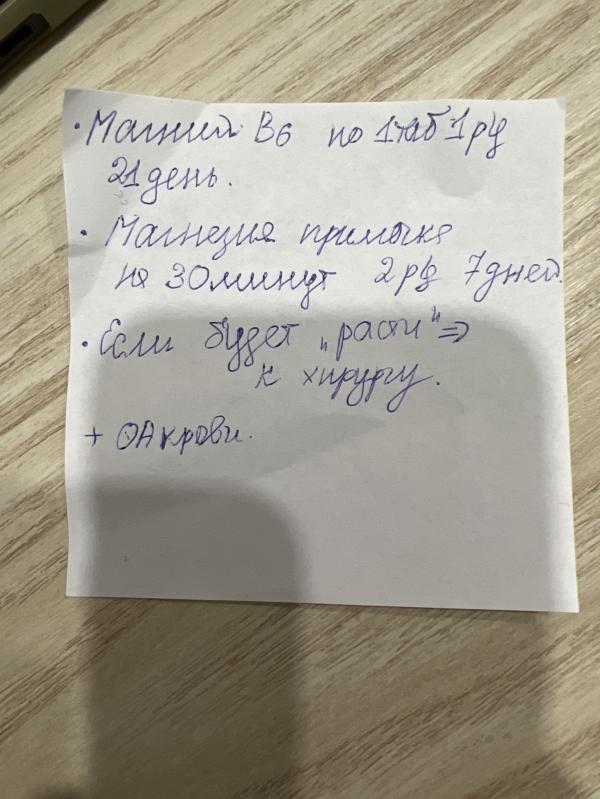 • Магний B6 по 1таб 1р/д
21 день.
• Магнезия примочка
на 30 минут 2р/д 7 дней.
• Если будет „расти" ⇒
к хирургу.
+ ОА крови.